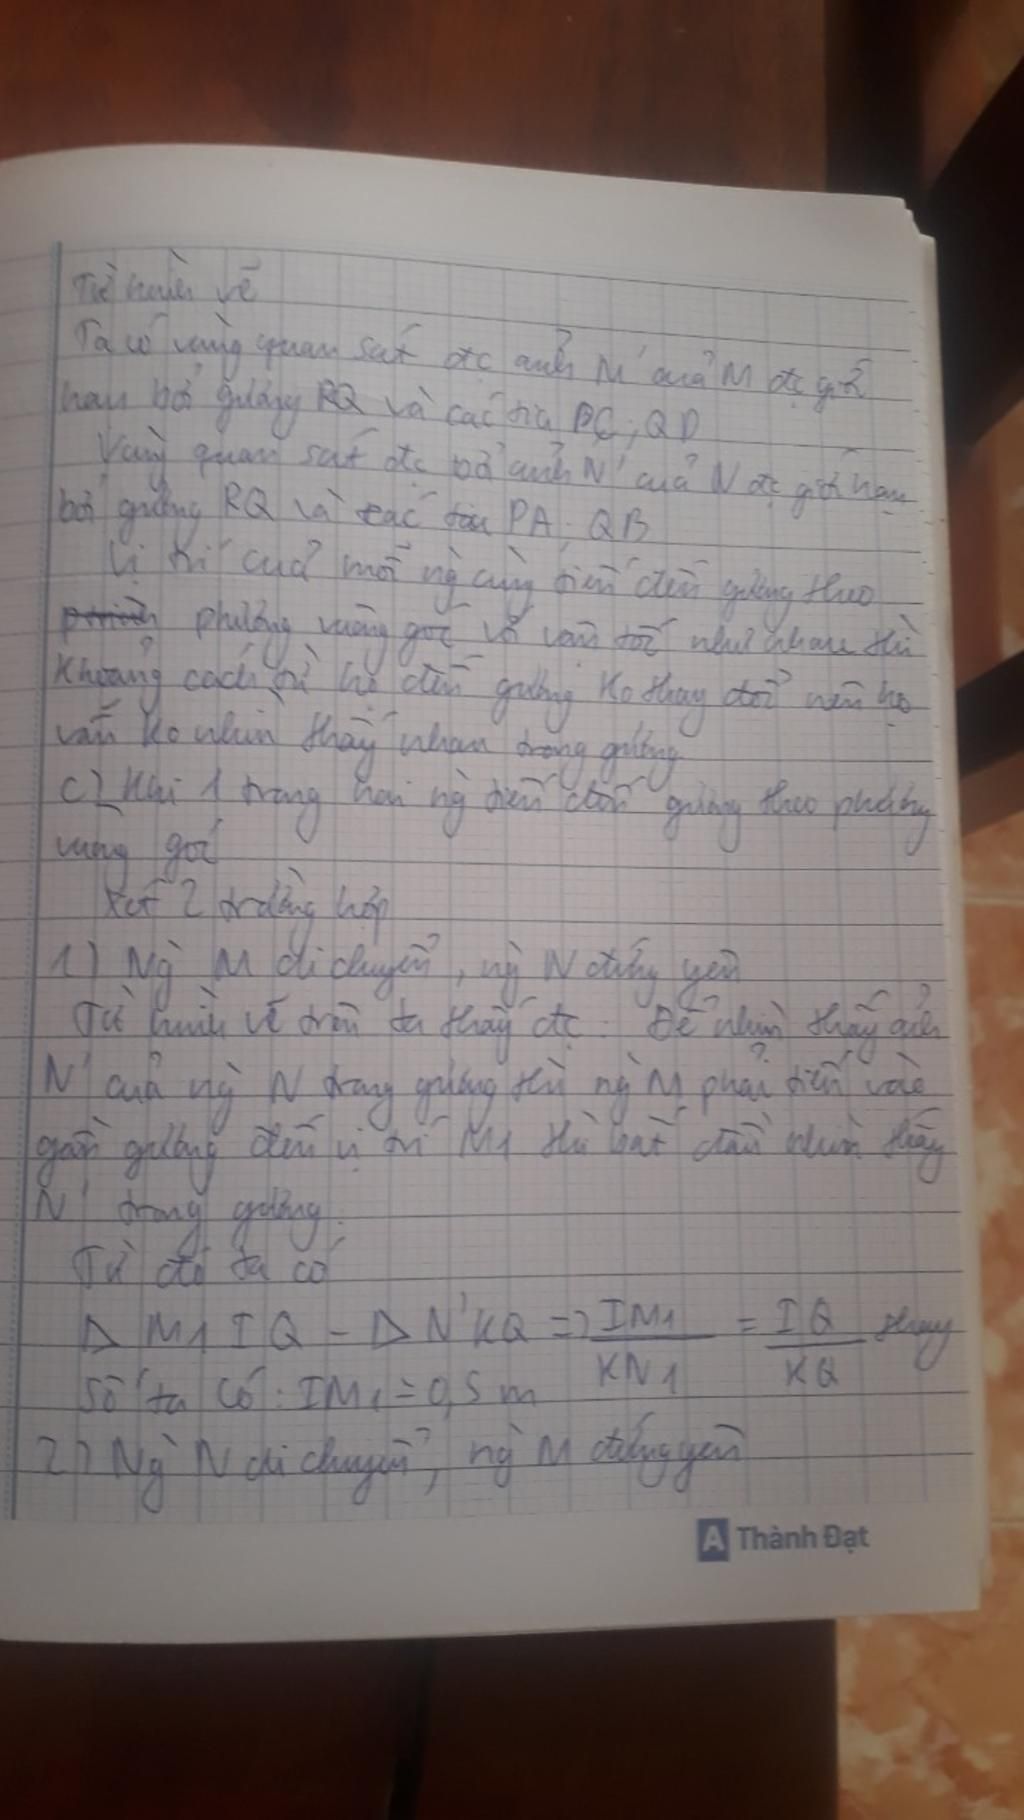 Từ hình vẽ
Ta có vùng quan sát đc ảnh M' của M đc giới
hạn bởi gương PQ và các tia PC; QD
Vùng quan sát đc bởi ảnh N' của N đc giới hạn
bởi gương PQ và các tia PA; QB
Vị trí của mỗi ng cùng tiến đến gương theo
phương vuông góc vs vận tốc như nhau thì
khoảng cách từ họ đến gương ko thay đổi nên họ
vẫn ko nhìn thấy nhau trong gương
c) Khi 1 trong hai ng tiến đến gương theo phương
vuông góc
Xét 2 trường hợp
1) Ng M di chuyển, ng N đứng yên
Từ hình vẽ trên ta thấy đc. Để nhìn thấy ảnh
N' của ng N trong gương thì ng M phải tiến vào
gần gương đến vị trí M1 thì bắt đầu nhìn thấy
N' trong gương.
Từ đó ta có
Δ M1 I Q ~ Δ N'KQ => IM1/KN1 = IQ/KQ thay
số ta có: IM1 = 0,5 m
2) Ng N di chuyển, ng M đứng yên
A Thành Đạt